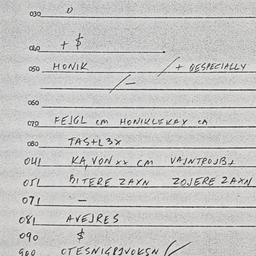 030 0
040 + $
050 HONIK /+ GESPECIALLY
/—
060
070 FEJGL CM HONIKLEKAX CA
080 TAS+L 3X
041 KA, VON xx CM VAJNTROJB+
051 BITERE ZAXN ZOJERE ZAXN
071 —
081 AVEJRES
090 $
900